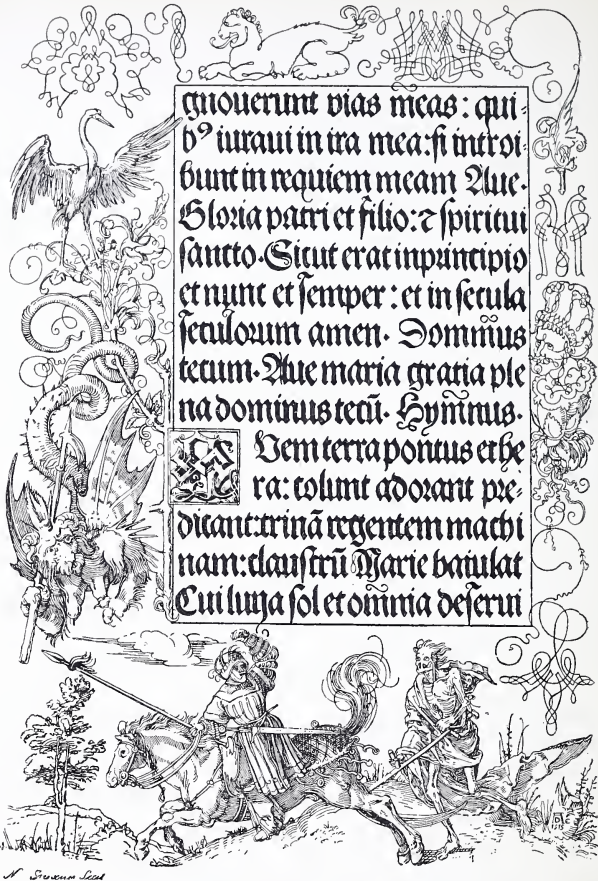 gnouerunt vias meas: qui-
bꝰ iuraui in ira mea: si introi-
bunt in requiem meam Aue.
Gloria patri et filio: ⁊ spiritui
sancto. Sicut erat in principio
et nunc et semper: et in secula
seculorum amen. Dominus
tecum. Aue maria gratia ple
na dominus tecū. Hymnus.
Quem terra pontus ethe
ra: colunt adorant pre-
dicant: trinā regentem machi
nam: claustrū Marie baiulat
Cui luna sol et omnia deserui